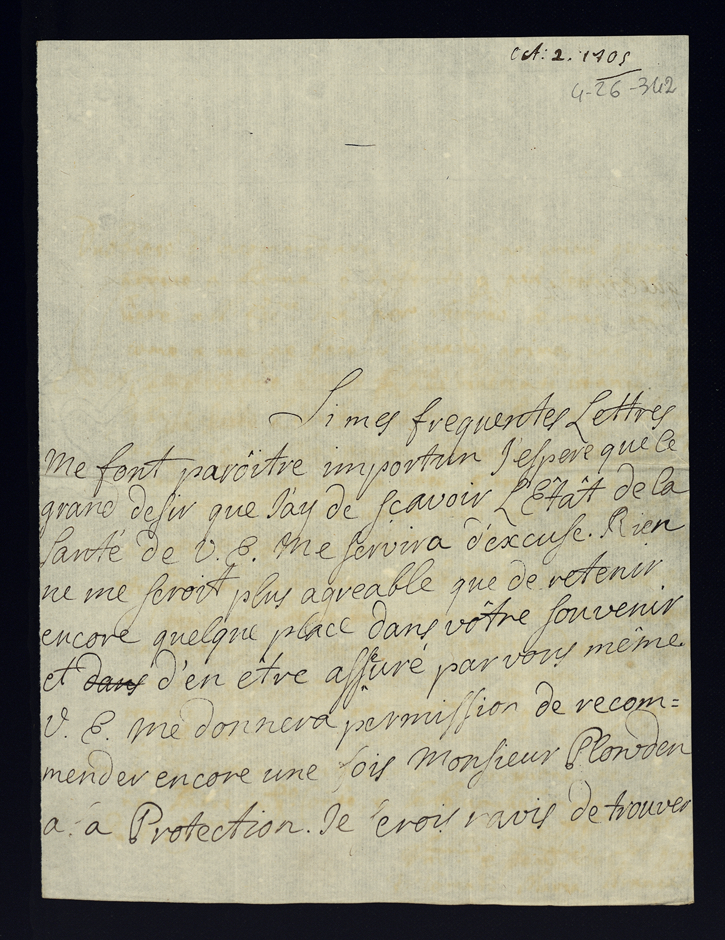 Oct: 2. 1705
4-26-342
Si mes frequentes Lettres
Me font parôitre importun J'espere que le
grand desir que J'ay de scavoir L'Etât de la
Santé de V. E. Me servira d'excuse. Rien
ne me seroit plus agreable que de retenir
encore quelque place dans vôtre souvenir
et dans d'en être assuré par vous même.
V. E. me donnera permission de recom=
mender encore une fois Monsieur Plowden
a sa Protection. Je serois ravis de trouver